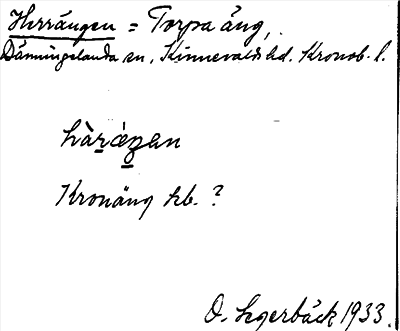 Herrängen = Torpa äng,
Dänningelanda sn, Kinnevalds hd. Kronob. l.
Kronäng kb. ?
O. Segerbäck 1933.